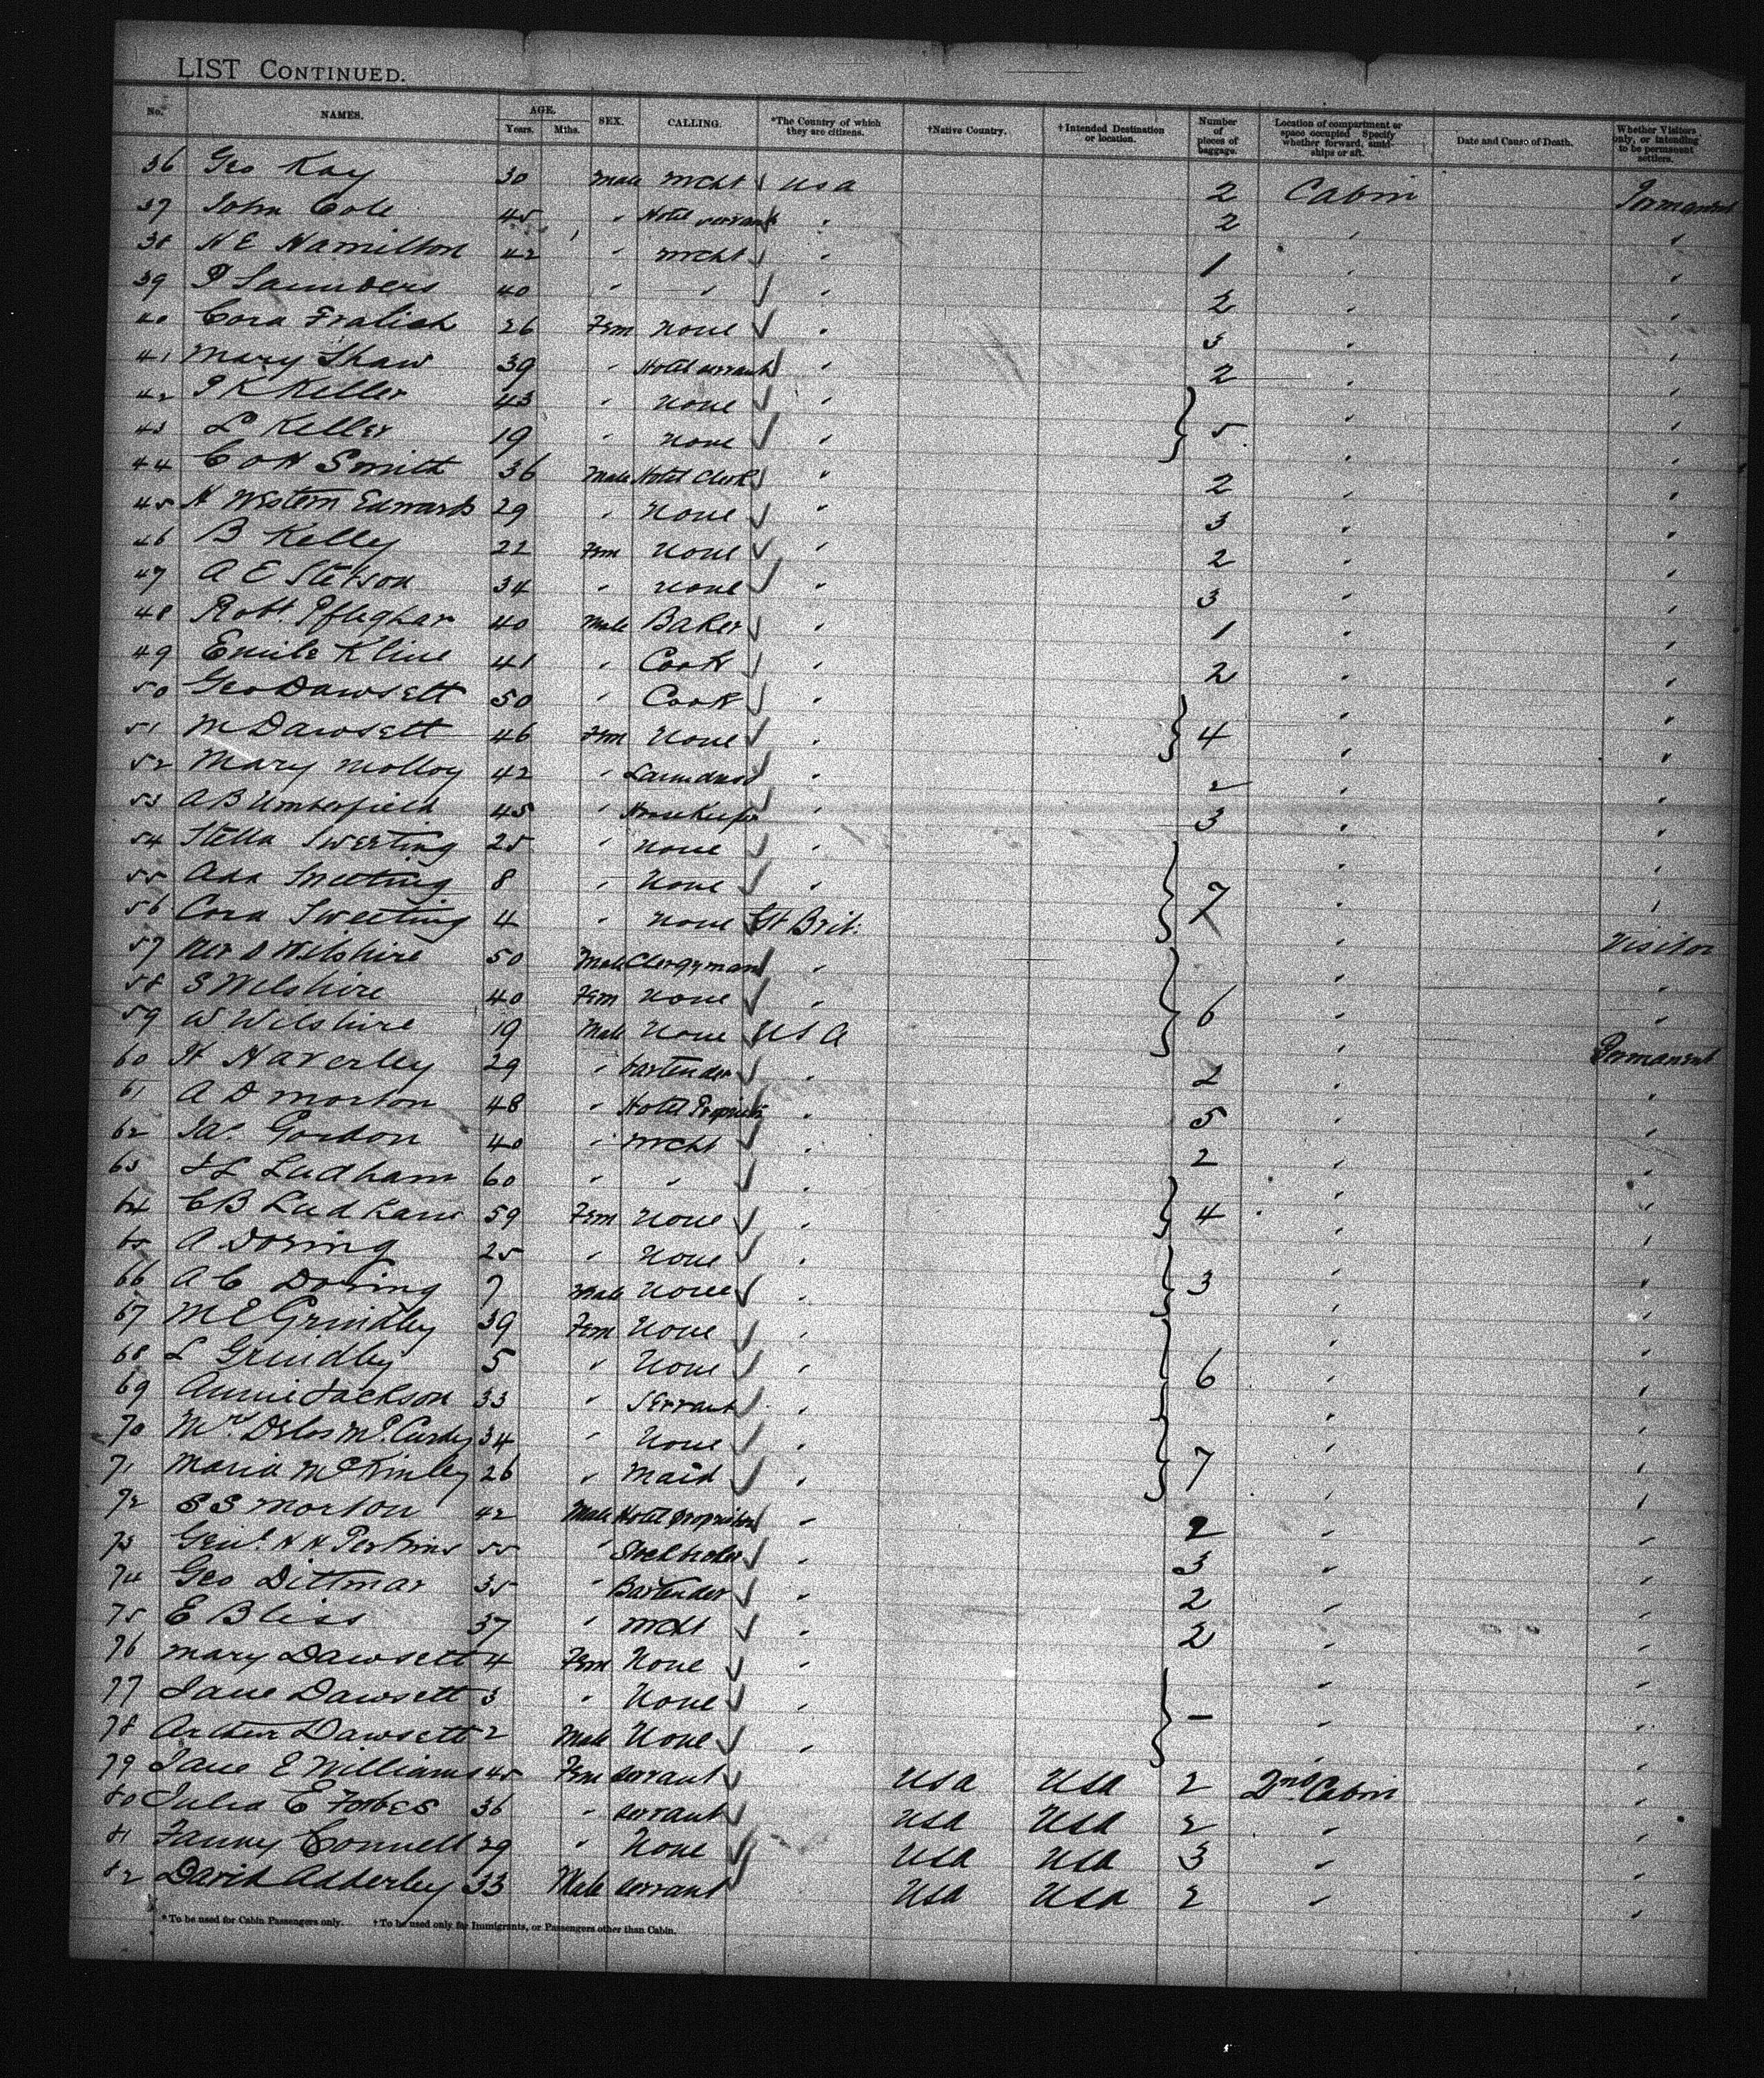 LIST CONTINUED.
No. NAMES. AGE. Years. Mths. SEX. CALLING. *The Country of which they are citizens. †Native Country. †Intended Destination or location. Number of pieces of baggage. Location of compartment or space occupied Specify whether forward, amidships or aft. Date and Cause of Death. Whether Visitors only, or intending to be permanent settlers.
36 Geo Kay 30 Male Mcht USA 2 Cabin Permanent
37 John Cole 45 " Hotel servant " 2 " "
38 H E Hamilton 42 " Mcht " 1 " "
39 P Saunders 40 " " " 2 " "
40 Cora Fralich 26 Fem None " 3 " "
41 Mary Shaw 39 " Hotel servant " 2 " "
42 P K Keller 43 " None " " "
43 L Keller 19 " None " 5 " "
44 C O H Smith 36 Male Hotel Clerk " 2 " "
45 H Western Edwards 29 " None " 3 " "
46 B Kelly 22 Fem None " 2 " "
47 A E Stetson 34 " None " 3 " "
48 Robt. Pfleghar 40 Male Baker " 1 " "
49 Emile Kline 41 " Cook " 2 " "
50 Geo Dawsett 50 " Cook " " "
51 M Dawsett 46 Fem None " 4 " "
52 Mary Molloy 42 " Laundress " 2 " "
53 A B Umberfield 45 " Housekeeper " 3 " "
54 Stella Sweeting 25 " None " " "
55 Ada Sweeting 8 " None " 7 " "
56 Cora Sweeting 4 " None Gt Brit. " Visitor
57 Rev D Wilshire 50 Male Clergyman " " "
58 S Wilshire 40 Fem None " 6 " "
59 W. Wilshire 19 Male None USA " Permanent
60 H Haverley 29 " bartender " 2 " "
61 A D Morton 48 " Hotel Proprietor " 5 " "
62 Jas. Gordon 40 " Mcht " 2 " "
63 J L Ludham 60 " " " " "
64 C B Ludham 59 Fem None " 4 " "
65 A Doring 25 " None " " "
66 A C Doring 7 Male None " 3 " "
67 M E Grindley 39 Fem None " " "
68 L Grindley 5 " None " 6 " "
69 Annie Jackson 33 " Servant " " "
70 Mrs. Delos McCurdy 34 " None " " "
71 Maria McKinley 26 " Maid " 7 " "
72 S S Morton 42 Male Hotel proprietor " 2 " "
73 Genl. H H Perkins 55 " " 3 " "
74 Geo Dittmar 35 " Bartender " 2 " "
75 E Bliss 37 " Mcht " 2 " "
76 Mary Dawsett 4 Fem None " " "
77 Jane Dawsett 3 " None " — " "
78 Arthur Dawsett 2 Male None " " "
79 Jane E Williams 45 Fem servant USA USA 2 2nd Cabin "
80 Julia E Forbes 36 " servant USA USA 2 " "
81 Fanny Connell 29 " None USA USA 3 " "
82 David Adderley 33 Male servant USA USA 2 " "
*To be used for Cabin Passengers only. †To be used only for Immigrants, or Passengers other than Cabin.